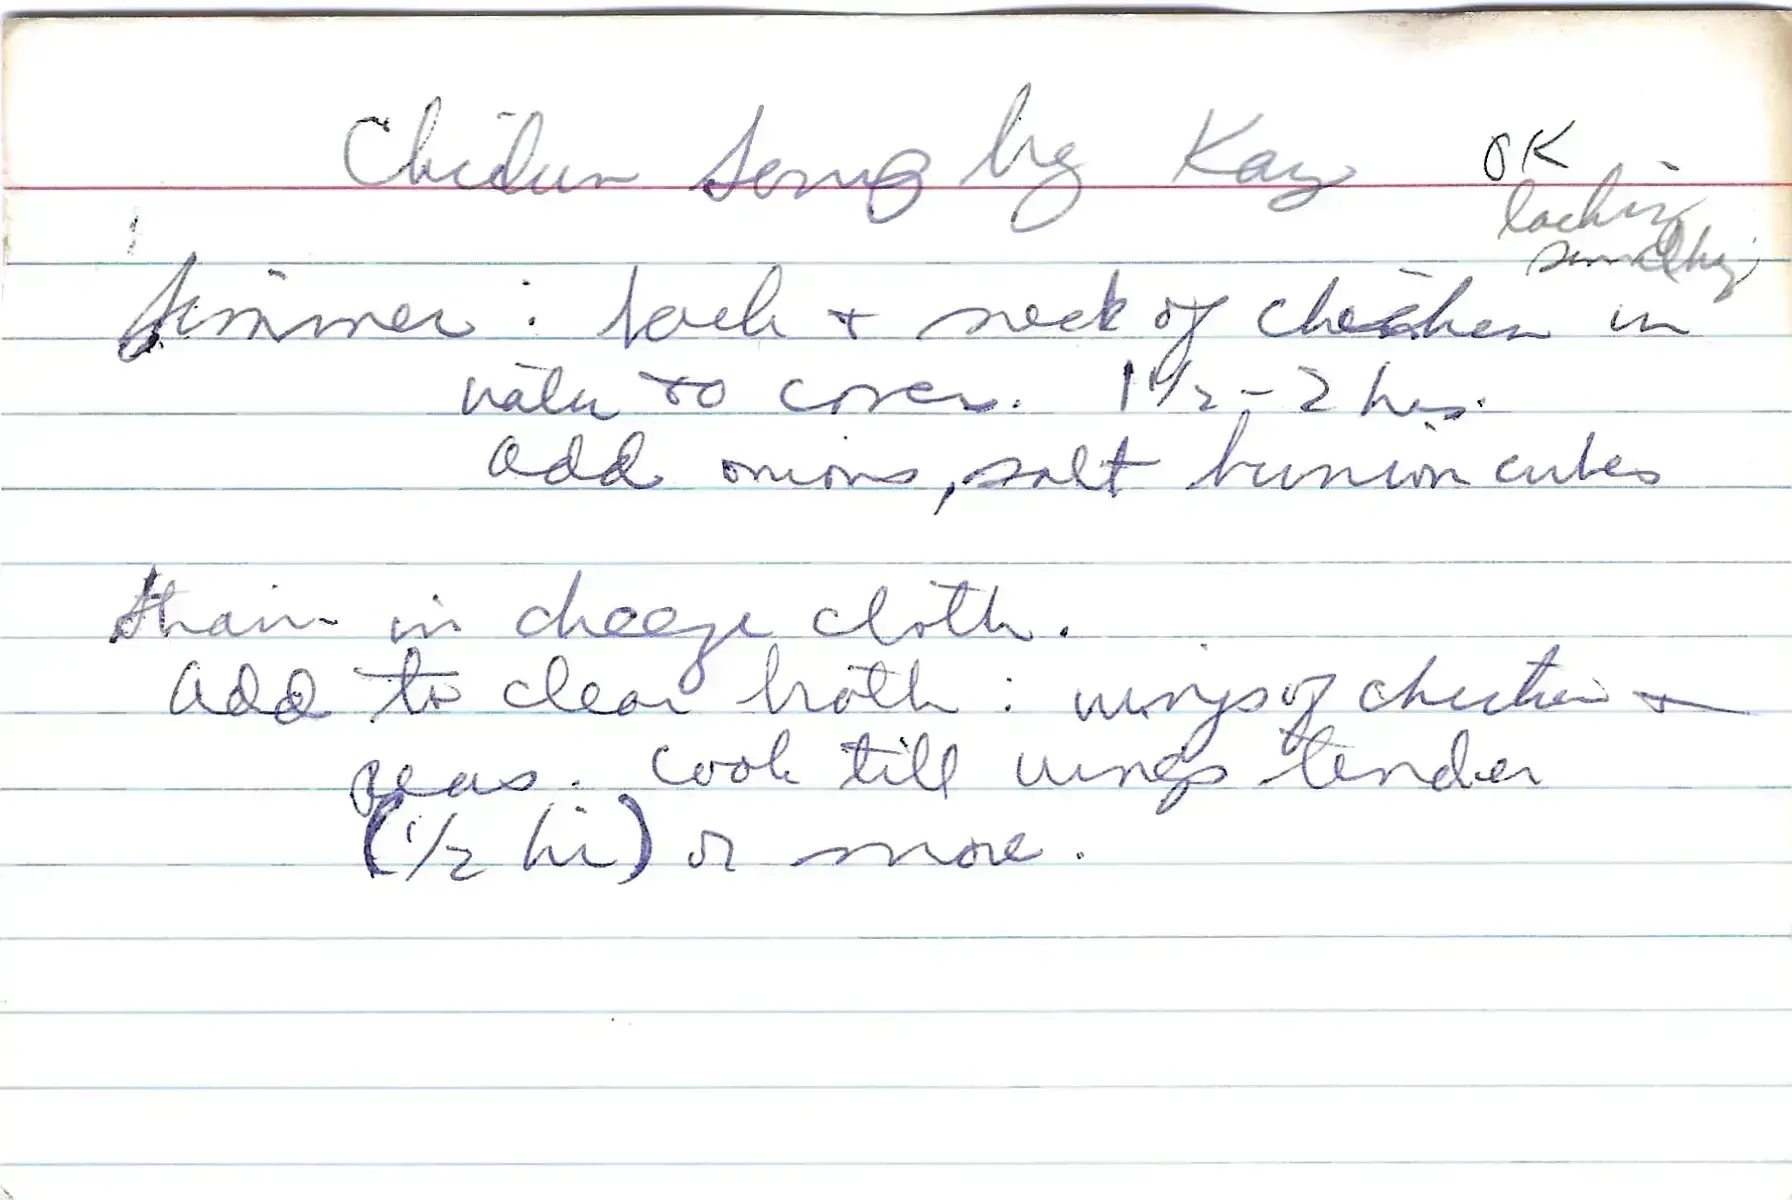 Chicken Soup by Kay OK
lacking
something
Simmer: back + neck of chicken in
water to cover. 1 1/2 - 2 hrs.
Add onions, salt bunion cubes
Strain in cheeze cloth.
Add to clear broth: wings of chicken +
peas. Cook till wings tender
(1/2 hr) or more.